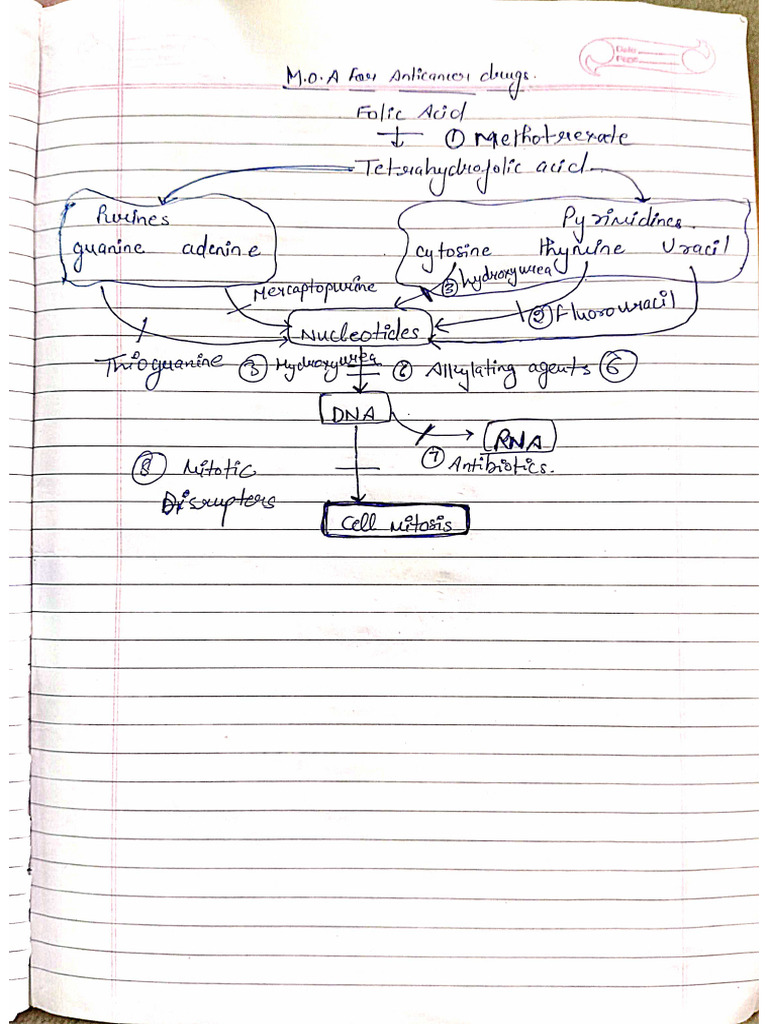 Date
Page
M.O.A For Anticancer drugs.
Folic Acid
① Methotrexate
Tetrahydrofolic acid
Purines
guanine adenine
Pyrimidines.
cytosine thymine Uracil
③ hydroxyurea
Mercaptopurine
② Fluorouracil
Nucleotides
Thioguanine ③ Hydroxyurea ⑥ Alkylating agents ⑥
DNA
RNA
⑦ Antibiotics.
⑧ Mitotic
Disrupters
Cell mitosis